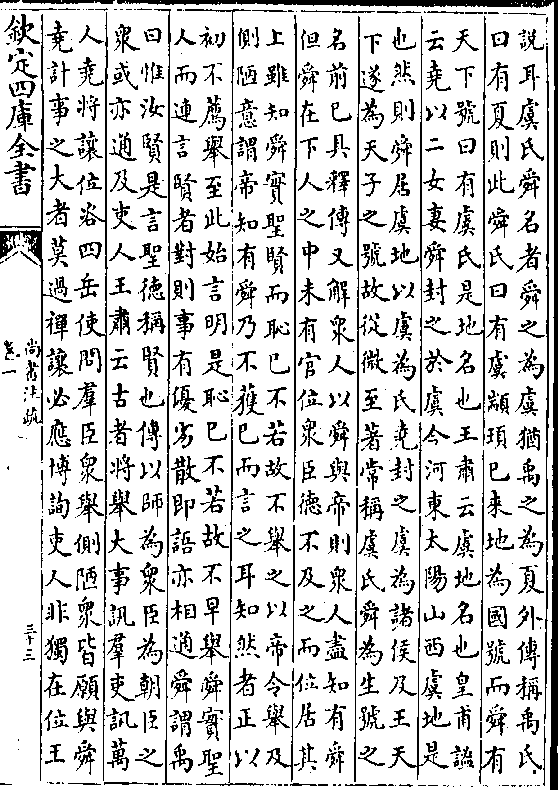 說耳虞氏舜名者舜之為虞猶禹之為夏外傳稱禹氏
曰有夏則此舜氏曰有虞顓頊已來地為國號而舜有
天下號曰有虞氏是地名也王肅云虞地名也皇甫謐
云堯以二女妻舜封之於虞今河東太陽山西虞地是
也然則舜居虞地以虞為氏堯封之虞為諸侯及王天
下遂為天子之號故從微至著常稱虞氏舜為生號之
名前已具釋傳又解衆人以舜與帝則衆人盡知有舜
但舜在下人之中未有官位衆臣德不及之而位居其
上雖知舜實聖賢而恥已不若故不舉之以帝令舉及
側陋意謂帝知有舜乃不獲已而言之耳知然者正以
初不薦舉至此始言明是恥已不若故不早舉舜實聖
人而連言賢者對則事有優劣散即語亦相通舜謂禹
曰惟汝賢是言聖德稱賢也傳以師為衆臣為朝臣之
衆或亦通及吏人王肅云古者將舉大事訊羣吏訊萬
人堯將讓位咨四岳使問羣臣衆舉側陋衆皆願與舜
堯計事之大者莫過禪讓必應博詢吏人非獨在位王
欽定四庫全書
尚書注疏
卷一
三十三